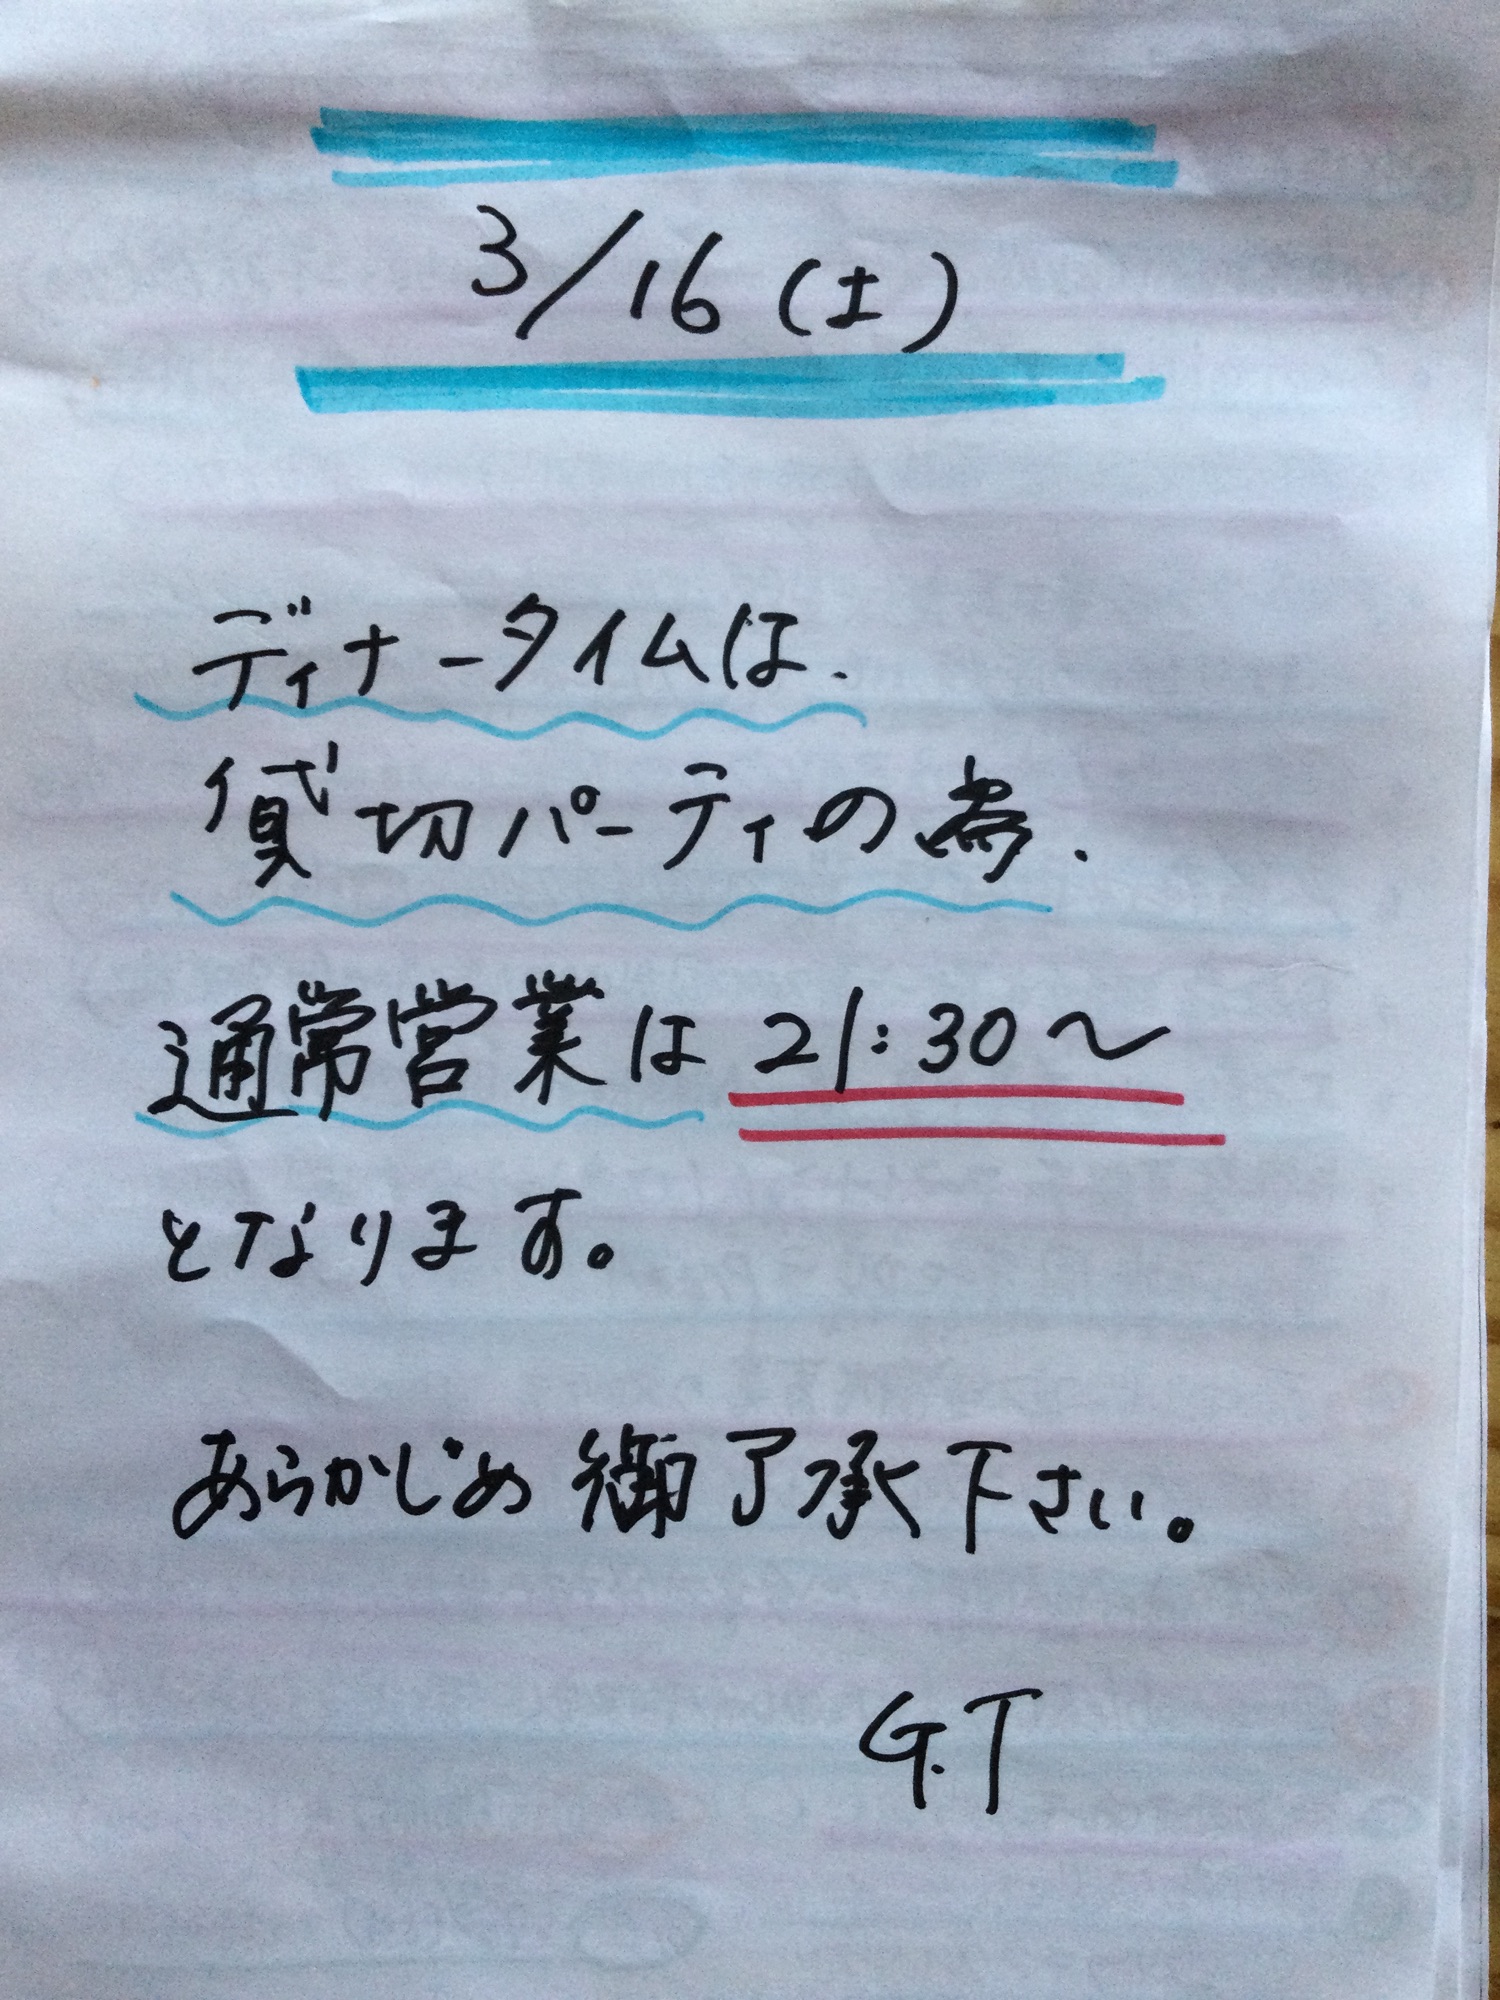 3/16 (土)
ディナータイムは、
貸切パーティの為、
通常営業は 21:30〜
となります。
あらかじめ御了承下さい。
G.T